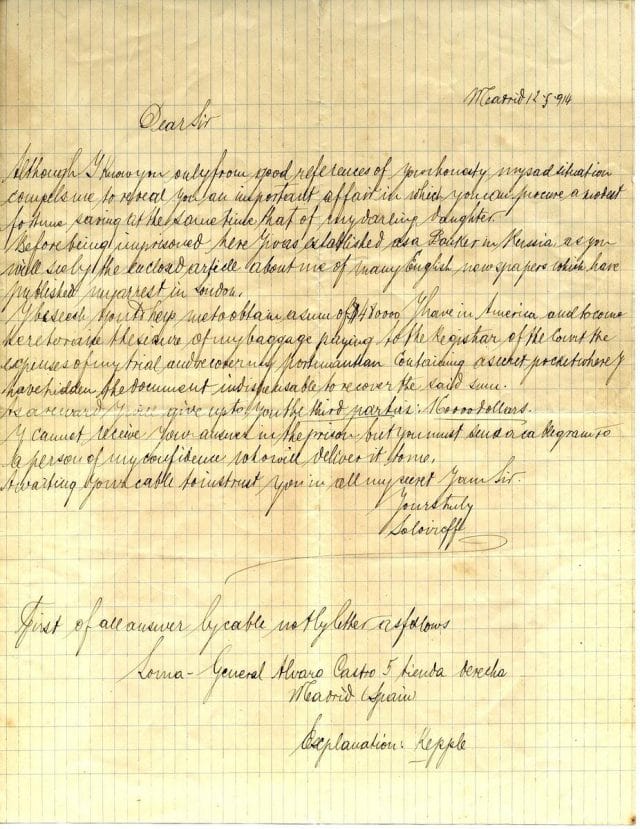 Madrid 12-5-914
Dear Sir
Although I Know you only from good references of your honesty my sad situation
compels me to reveal you an important affair in which you can procure a modest
fortune saving at the same time that of my darling daughter.
Before being imprisoned here I was established as a Banker in Russia as you
will see by the enclosed article about me of many English newspapers which have
published my arrest in London.
I beseech you to help me to obtain a sum of $480000 I have in America and to come
here to raise the seizure of my baggage paying to the Registrar of the Court the
expenses of my trial and recover my Portmanteau containing a secret pocket where I
have hidden the document indispensable to recover the said sum.
As a reward I will give up to you the third part viz: 160000 dollars.
I cannot receive your answer in the prison but you must send a cablegram to
a person of my confidence who will deliver it to me.
Awaiting your cable to instruct you in all my secret I am Sir.
Yours truly
Solovieff
First of all answer by cable not by letter as follows
Loma- General Alvaro Castro 5 tienda derecha
Madrid (Spain)
Explanation: Kepple